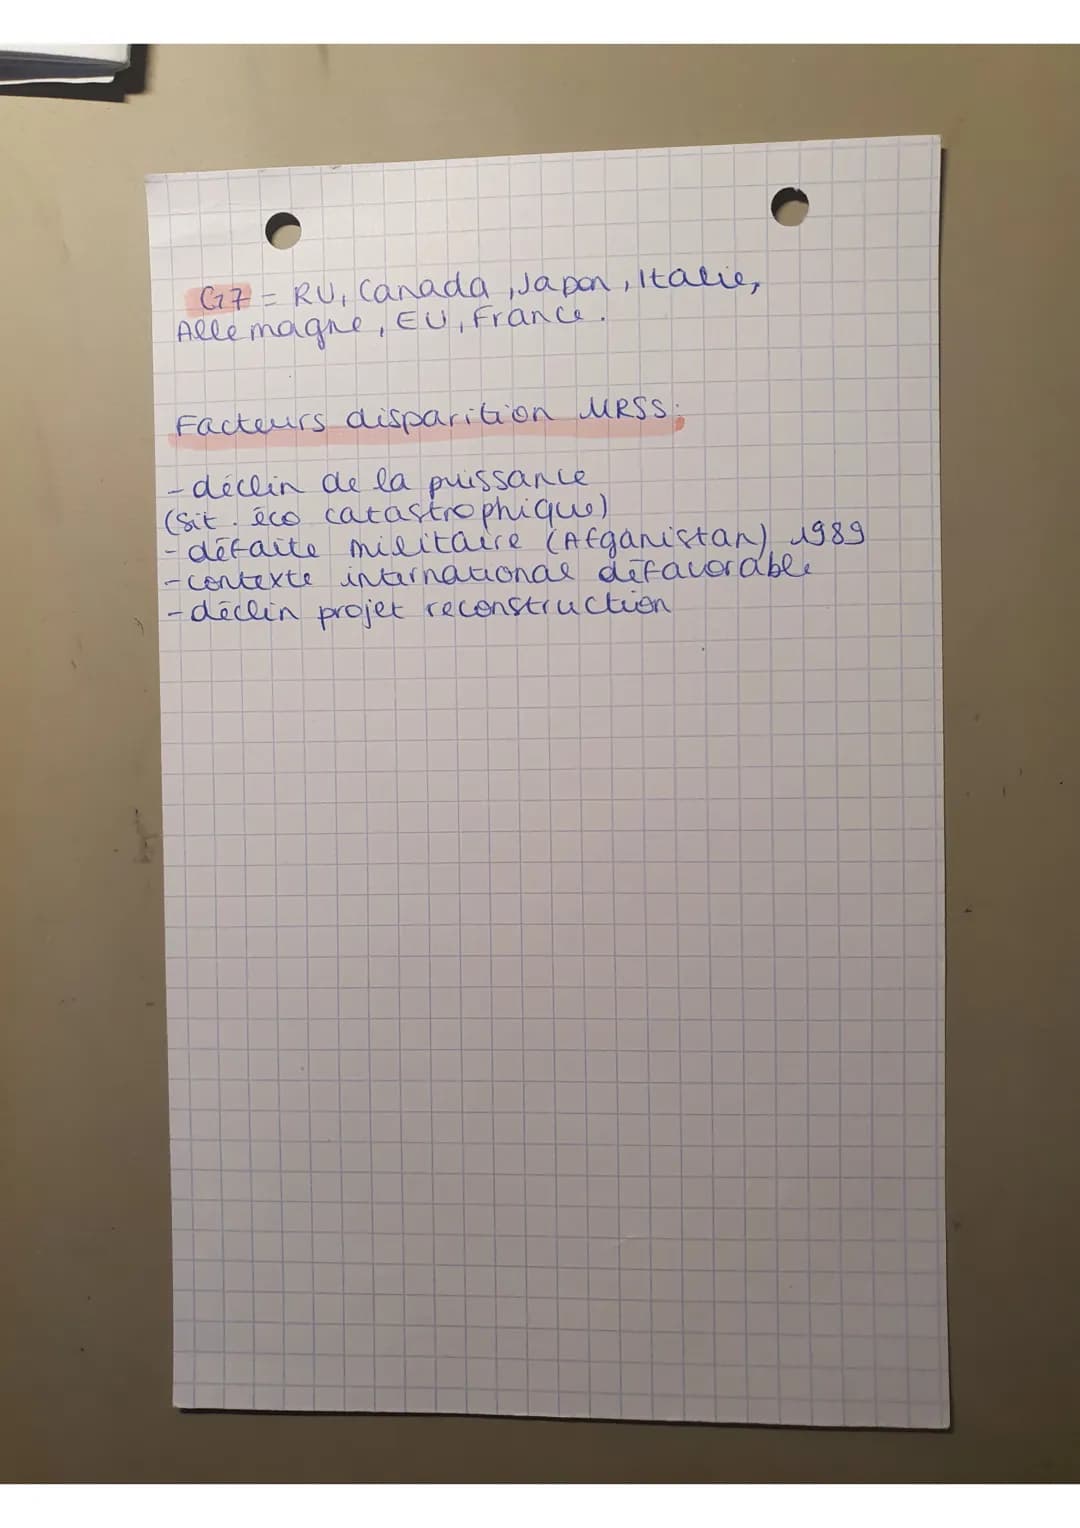 G7 = RU, Canada, Japon, Italie,
Allemagne, EU, France.
Facteurs disparition URSS:
- déclin de la puissance
(sit. éco catastrophique)
- défaite militaire (Afganistan) 1989
- contexte international défavorable
- déclin projet reconstruction